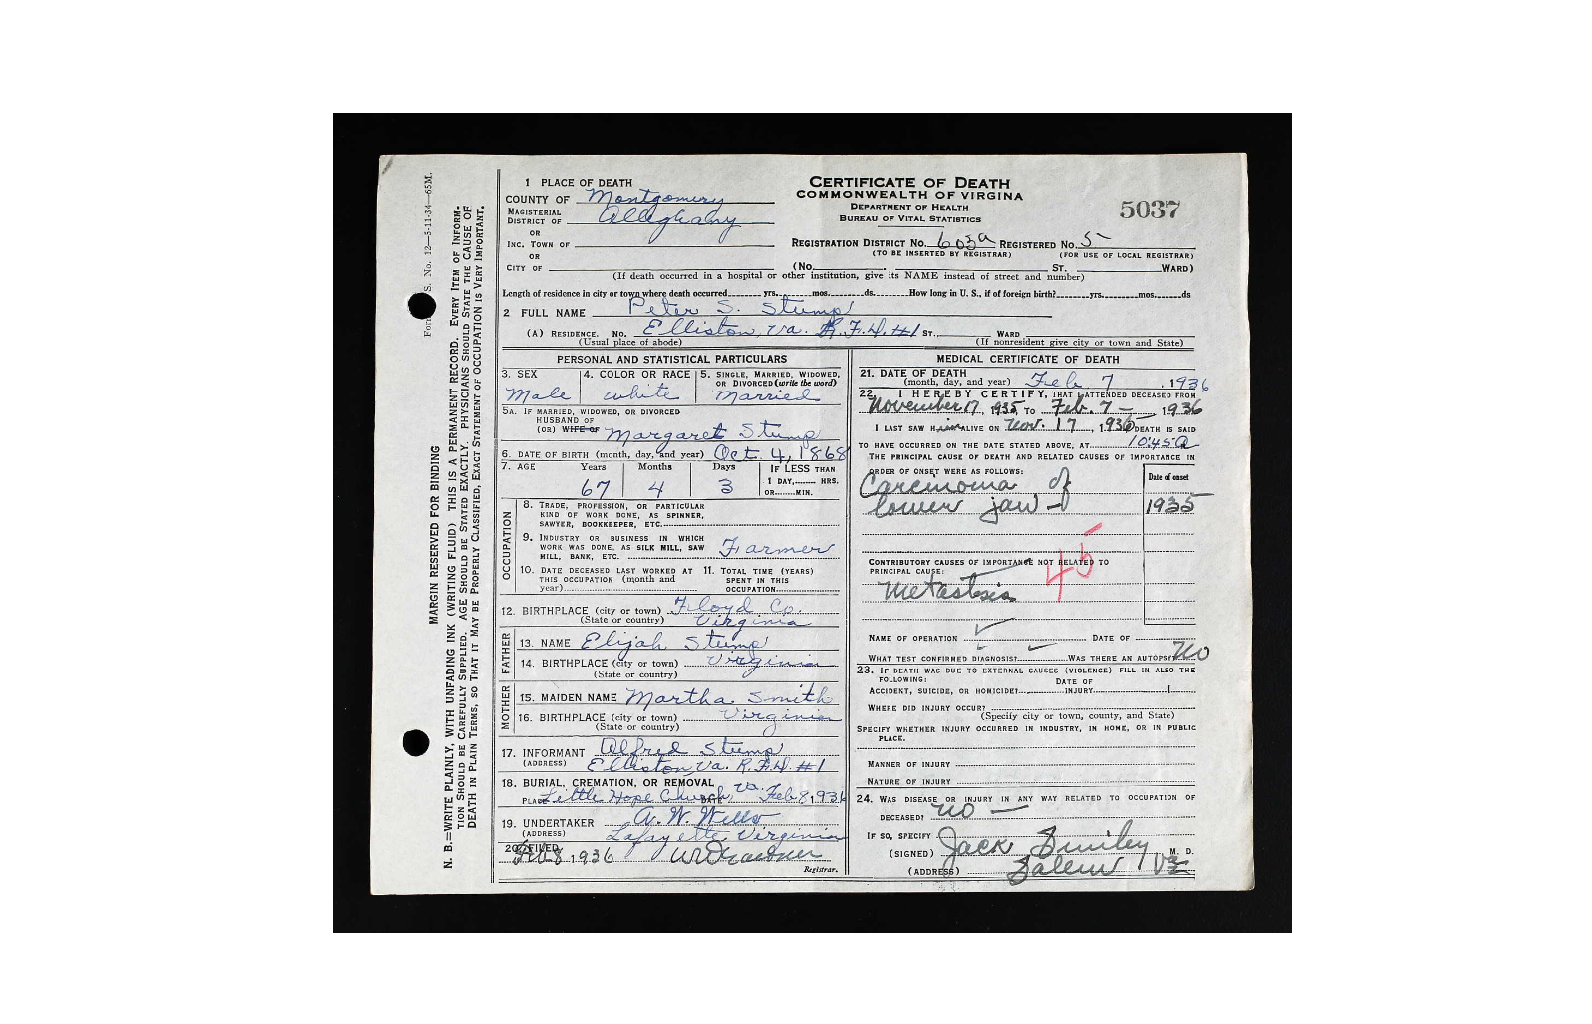 Form V. S. No. 12—5-11-34—65M.
MARGIN RESERVED FOR BINDING
N. B.—WRITE PLAINLY, WITH UNFADING INK (WRITING FLUID) THIS IS A PERMANENT RECORD. EVERY ITEM OF INFORM-
TION SHOULD BE CAREFULLY SUPPLIED. AGE SHOULD BE STATED EXACTLY. PHYSICIANS SHOULD STATE THE CAUSE OF
DEATH IN PLAIN TERMS, SO THAT IT MAY BE PROPERLY CLASSIFIED. EXACT STATEMENT OF OCCUPATION IS VERY IMPORTANT.
1 PLACE OF DEATH
COUNTY OF Montgomery
MAGISTERIAL
DISTRICT OF Alleghany
OR
INC. TOWN OF
OR
CITY OF
CERTIFICATE OF DEATH
COMMONWEALTH OF VIRGINA
DEPARTMENT OF HEALTH
BUREAU OF VITAL STATISTICS
5037
REGISTRATION DISTRICT NO. 605a REGISTERED NO. 5
(TO BE INSERTED BY REGISTRAR) (FOR USE OF LOCAL REGISTRAR)
(No. ST. WARD)
(If death occurred in a hospital or other institution, give its NAME instead of street and number)
Length of residence in city or town where death occurred yrs. mos. ds. How long in U. S., if of foreign birth? yrs. mos. ds
2 FULL NAME Peter S. Stump
(A) RESIDENCE. NO. Elliston, Va. R.F.D. #1 ST. WARD
(Usual place of abode) (If nonresident give city or town and State)
PERSONAL AND STATISTICAL PARTICULARS
3. SEX
Male
4. COLOR OR RACE
white
5. SINGLE, MARRIED, WIDOWED,
OR DIVORCED (write the word)
Married
5A. IF MARRIED, WIDOWED, OR DIVORCED
HUSBAND OF
(OR) WIFE OF Margaret Stump
6. DATE OF BIRTH (month, day, and year) Oct. 4, 1868
7. AGE Years Months Days IF LESS THAN
1 DAY, HRS.
OR MIN.
67 4 3
OCCUPATION
8. TRADE, PROFESSION, OR PARTICULAR
KIND OF WORK DONE, AS SPINNER,
SAWYER, BOOKKEEPER, ETC.
9. INDUSTRY OR BUSINESS IN WHICH
WORK WAS DONE, AS SILK MILL, SAW
MILL, BANK, ETC. Farmer
10. DATE DECEASED LAST WORKED AT
THIS OCCUPATION (month and
year)
11. TOTAL TIME (YEARS)
SPENT IN THIS
OCCUPATION
12. BIRTHPLACE (city or town) Floyd Co.
(State or country) Virginia
FATHER
13. NAME Elijah Stump
14. BIRTHPLACE (city or town) Virginia
(State or country)
MOTHER
15. MAIDEN NAME Martha Smith
16. BIRTHPLACE (city or town) Virginia
(State or country)
17. INFORMANT Alfred Stump
(ADDRESS) Elliston Va. R.F.D. #1
18. BURIAL, CREMATION, OR REMOVAL
PLACE Little Hope Church, Va. DATE Feb 8, 1936
19. UNDERTAKER A. W. Wells
(ADDRESS) Lafayette Virginia
20. FILED Feb 8 1936
Registrar.
MEDICAL CERTIFICATE OF DEATH
21. DATE OF DEATH
(month, day, and year) Feb 7, 1936
22. I HEREBY CERTIFY, THAT I ATTENDED DECEASED FROM
November 17, 1935 TO Feb. 7 — 1936
I LAST SAW Him ALIVE ON Nov. 17, 1935 DEATH IS SAID
TO HAVE OCCURRED ON THE DATE STATED ABOVE, AT 10:45 a
THE PRINCIPAL CAUSE OF DEATH AND RELATED CAUSES OF IMPORTANCE IN
ORDER OF ONSET WERE AS FOLLOWS: Date of onset
Carcinoma of
lower jaw — 1935
45
CONTRIBUTORY CAUSES OF IMPORTANCE NOT RELATED TO
PRINCIPAL CAUSE:
Metastasis
NAME OF OPERATION DATE OF
WHAT TEST CONFIRMED DIAGNOSIS? WAS THERE AN AUTOPSY? No
23. IF DEATH WAS DUE TO EXTERNAL CAUSES (VIOLENCE) FILL IN ALSO THE
FOLLOWING: DATE OF
ACCIDENT, SUICIDE, OR HOMICIDE? INJURY
WHERE DID INJURY OCCUR?
(Specify city or town, county, and State)
SPECIFY WHETHER INJURY OCCURRED IN INDUSTRY, IN HOME, OR IN PUBLIC
PLACE.
MANNER OF INJURY
NATURE OF INJURY
24. WAS DISEASE OR INJURY IN ANY WAY RELATED TO OCCUPATION OF
DECEASED? No —
IF SO, SPECIFY
(SIGNED) Jack Smiley M. D.
(ADDRESS) Salem Va